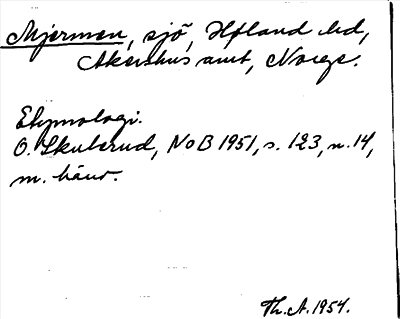 Mjermen, sjö, Høland hd,
Akershus amt, Norge.
Etymologi.
O. Skulerud, NoB 1951, s. 123, n. 14,
m. hänv.
Th. A. 1954.